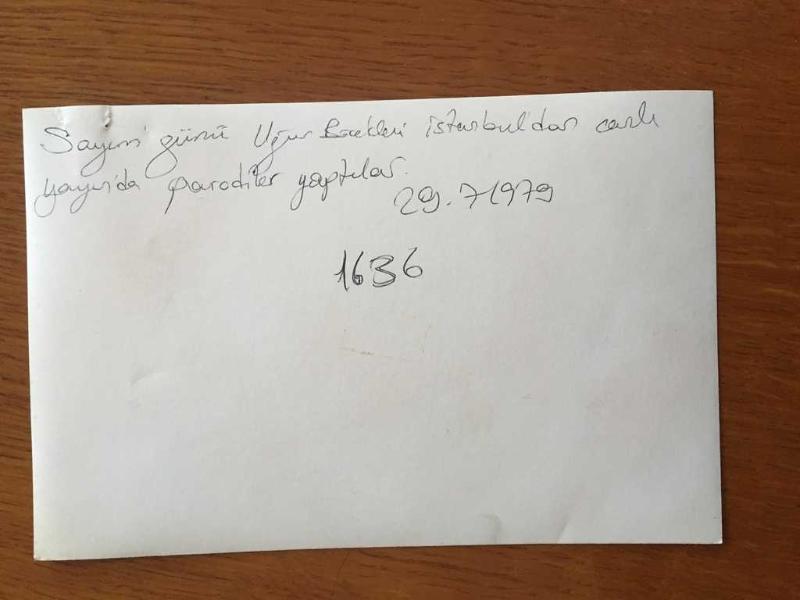 Sayım günü Uğur Böcekleri istanbul'dan canlı
yayın'da parodiler yaptılar.
29.7.1979
1636